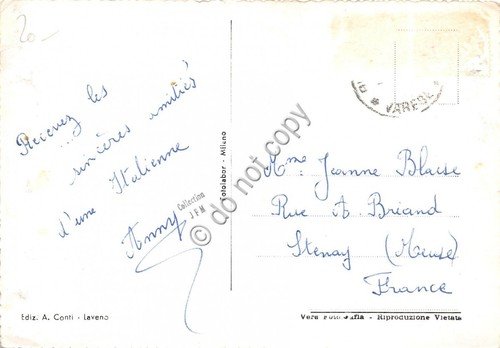 20-
Recevez les
sincères amitiés
d'une Italienne
Anny
Collection
J P M
© do not copy
Fotolabor - Milano
VARESE
Mme Jeanne Blaise
Rue A. Briand
Stenay (Meuse)
France
Ediz. A. Conti - Laveno
Vera Fotografia - Riproduzione Vietata